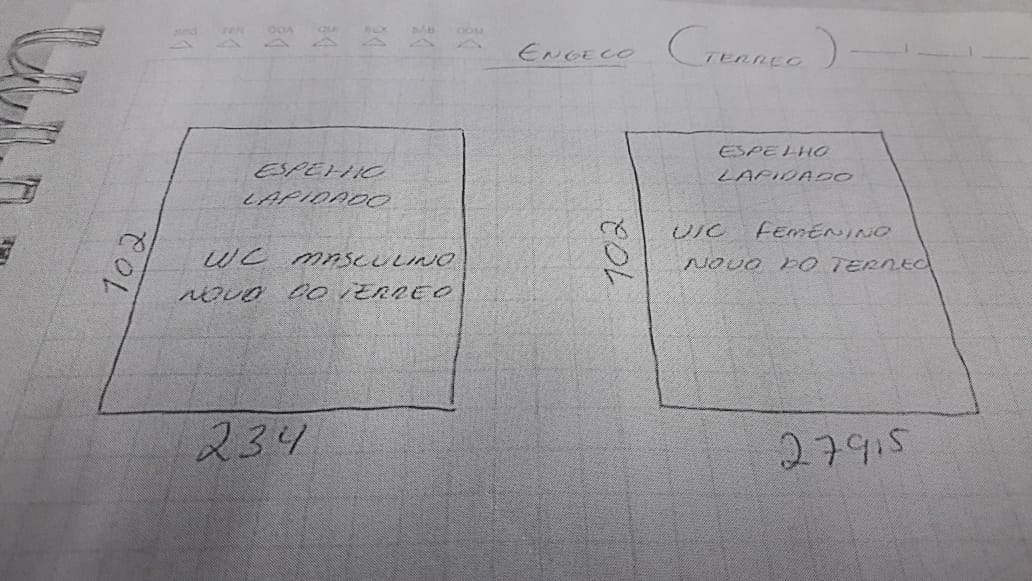 SEG TER QUA QUI SEX SÁB DOM
ENGECO (TERREO)
ESPELHO
LAPIDADO
WC MASCULINO
NOVO DO TERREO
102
234
ESPELHO
LAPIDADO
WC FEMENINO
NOVO DO TERREO
102
279,5